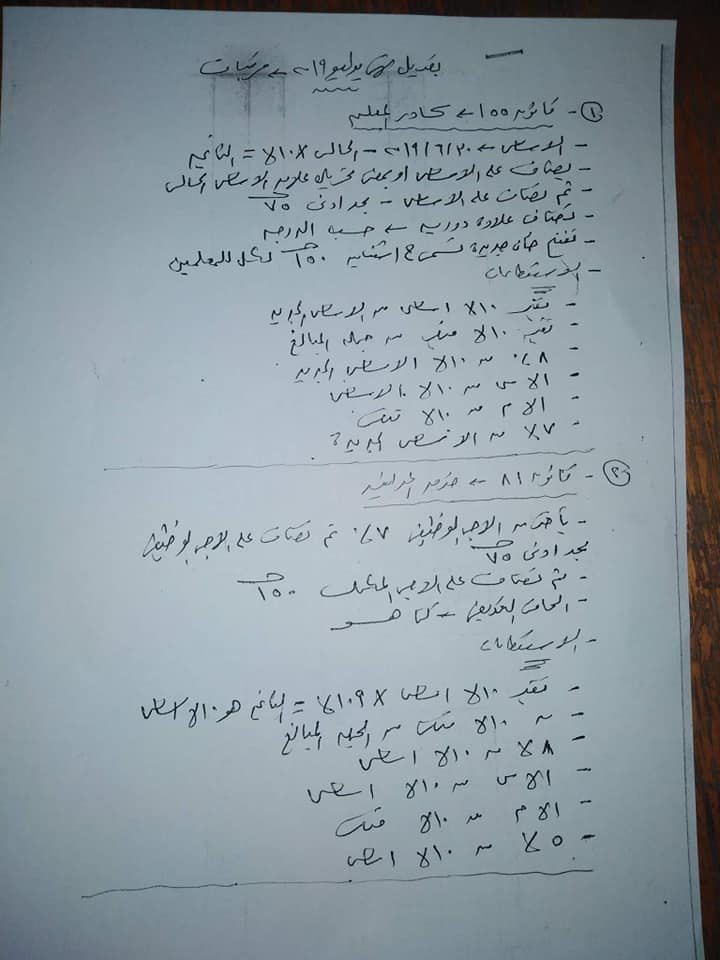 تعديل يوليو ٢٠١٩ ← مرتبات
① - قانون ١٥٥ ← كادر المعلم
- الاساسى ← ٢٠١٩/٦/٣٠ - الحالى × ١٠٪ = الناتج
- يضاف على الاساسى او بمعنى علاوة الاساسى الحالى
- ثم تضاف على الاساسى - بحد ادنى ٧٥
- تضاف علاوة دورية ← حسب الدرجة
- تفتح خانة جديدة تسمى ح استثنائية ١٥٠ لكل المعلمين
- الاستقطاعات
- ١٠٪ اساسى من الاساسى الجديد
- ١٠٪ من جملة المبالغ
- ٨٪ من ١٠٪ الاساسى الجديد
- ١٪ س من ١٠٪ الاساسى
- ١٪ م من ١٠٪
- ٧٪ من الاساسى الجديد؟
② - قانون ٨١ ← خدمة المدنية
- من الاجر الوظيفى ٧٪ ثم تضاف على الاجر الوظيفى
بحد ادنى ٧٥
- ثم تضاف على الاجر المكمل ١٥٠
- الحافز التعويضى ← كما هو
- الاستقطاعات
- ١٠٪ اساسى × ١٠٩٪ = الناتج هو ١٠٪ اساسى
- ١٠٪ من جملة المبالغ
- ٨٪ من ١٠٪ اساسى
- ١٪ س من ١٠٪ اساسى
- ١٪ م من ١٠٪
- ٥٪ من ١٠٪ اساسى